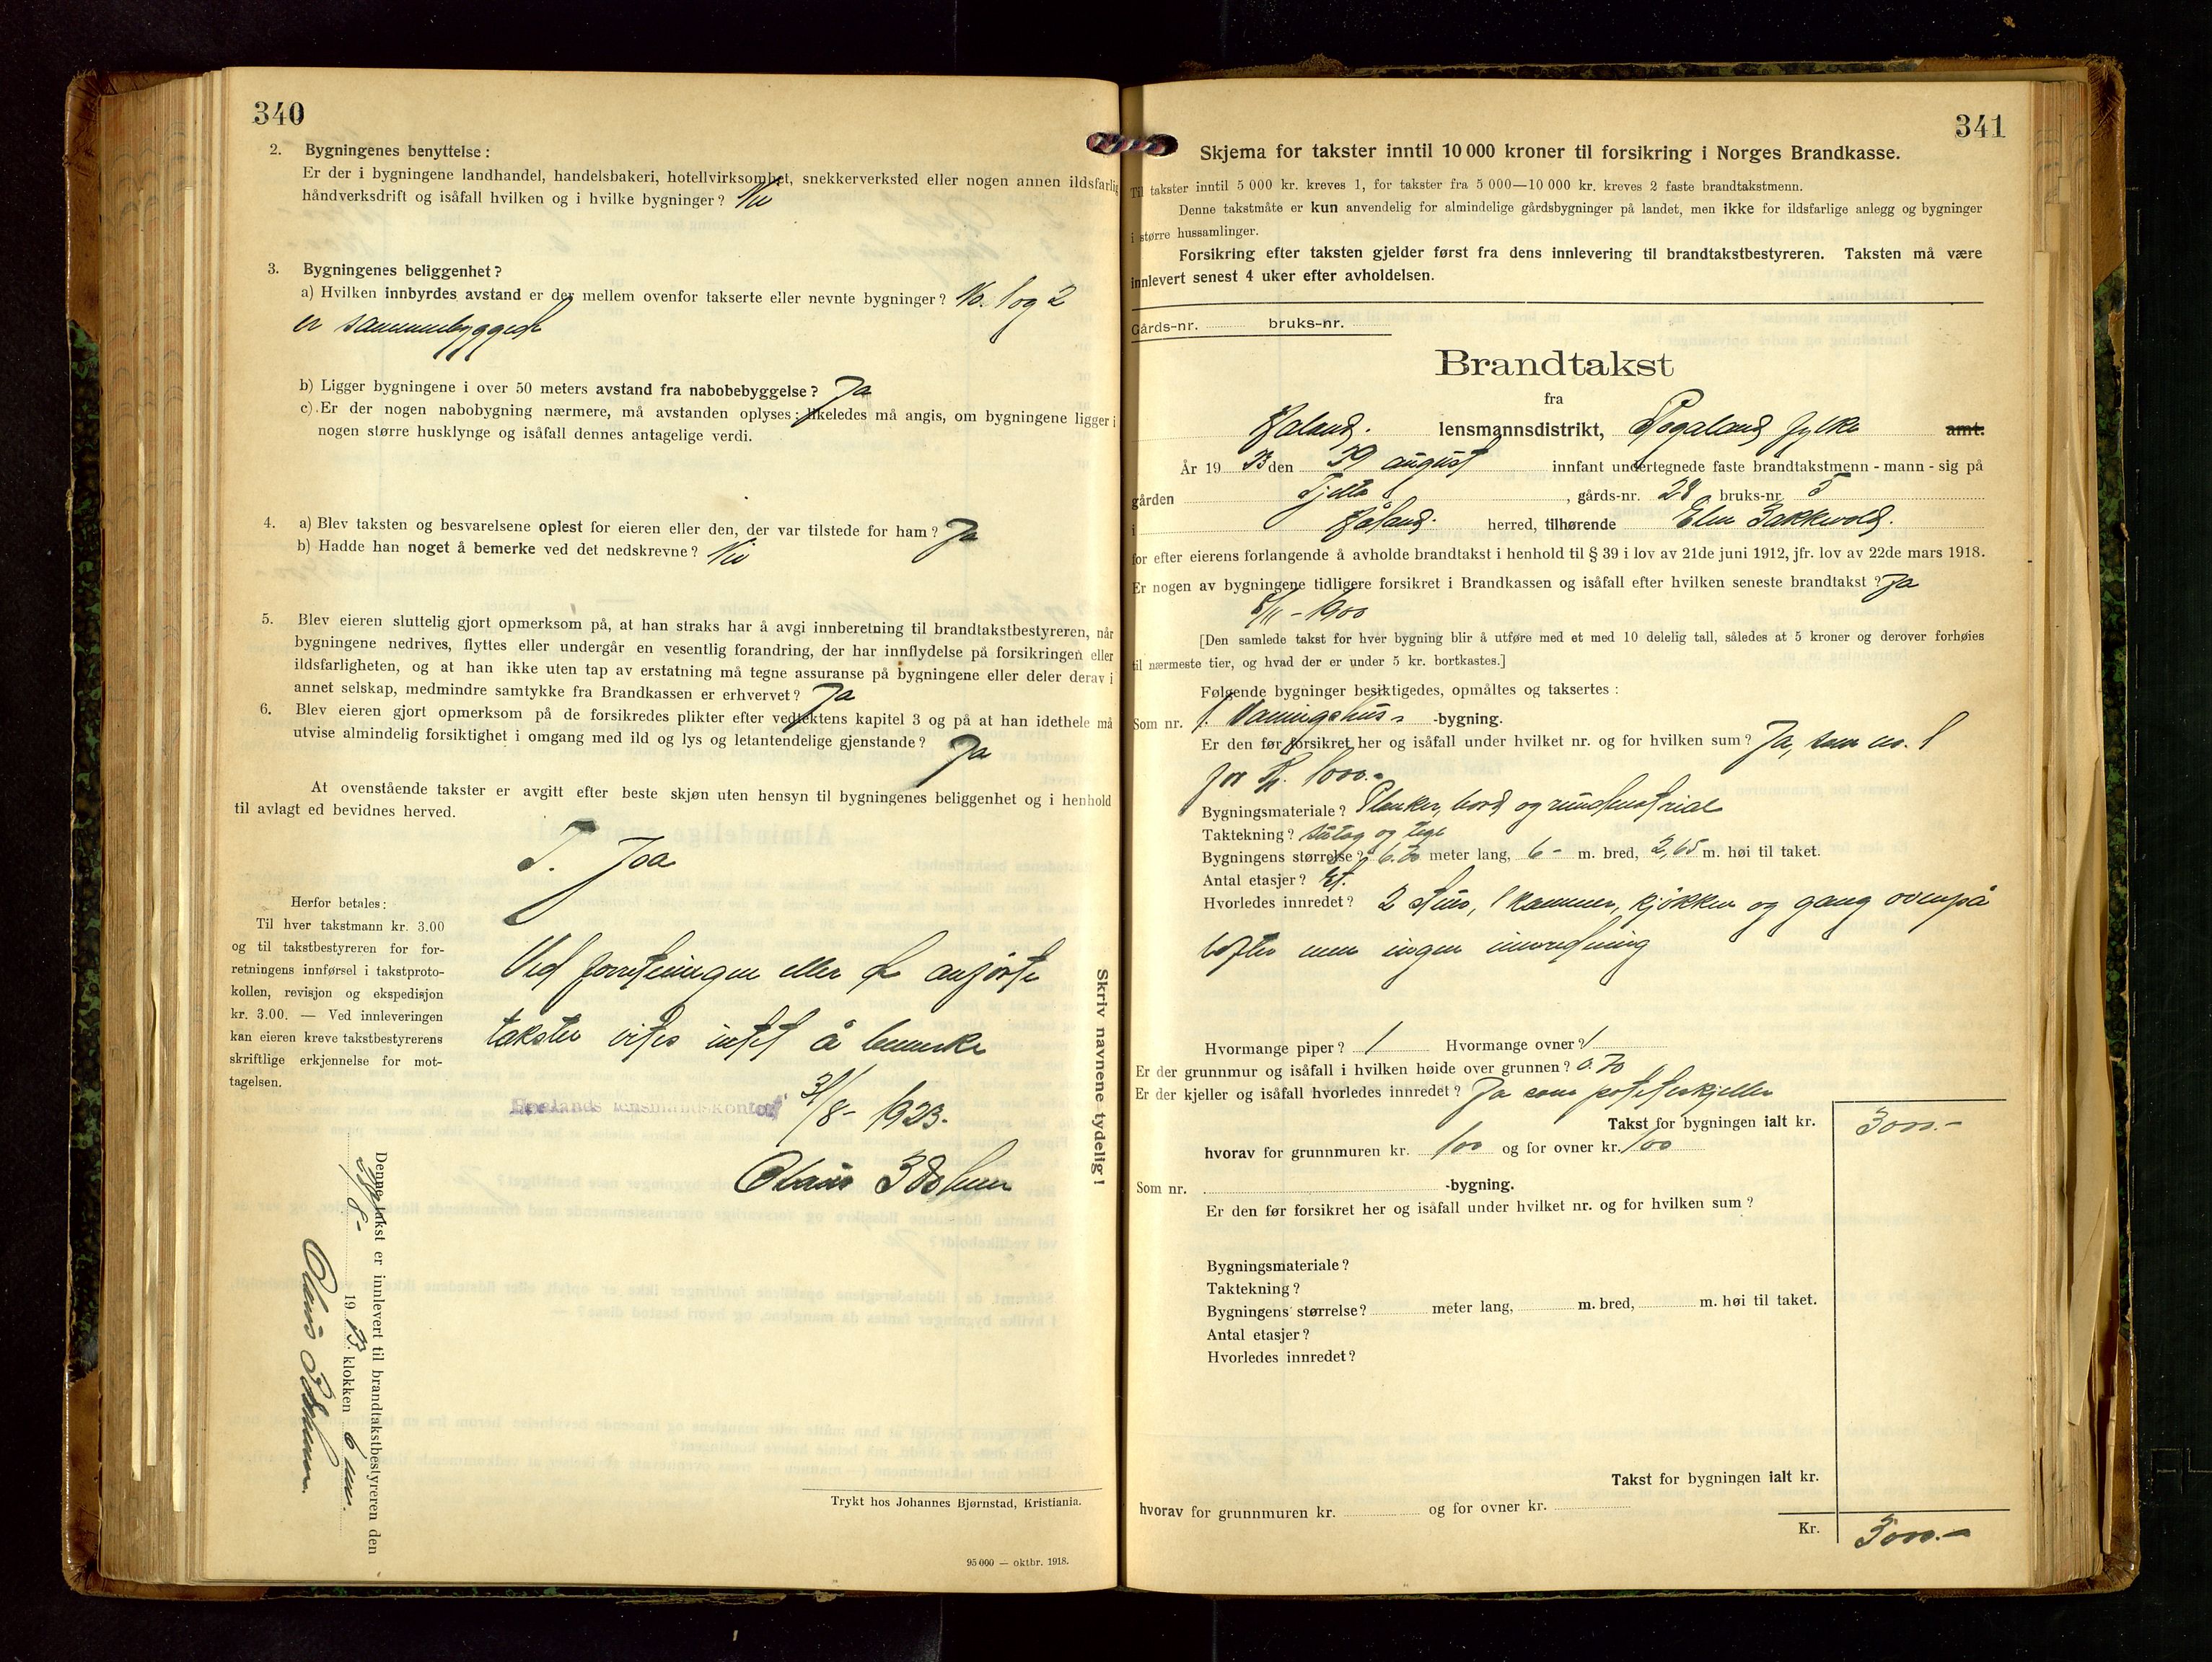 340
2. Bygningenes benyttelse:
Er der i bygningene landhandel, handelsbakeri, hotellvirksomhet, snekkerverksted eller nogen annen ildsfarlig
håndverksdrift og isåfall hvilken og i hvilke bygninger? Nei
3. Bygningenes beliggenhet?
a) Hvilken innbyrdes avstand er der mellem ovenfor takserte eller nevnte bygninger? No. 1 og 2
er sammenbygged
b) Ligger bygningene i over 50 meters avstand fra nabobebyggelse? Ja
c) Er der nogen nabobygning nærmere, må avstanden oplyses; likeledes må angis, om bygningene ligger i
nogen større husklynge og isåfall dennes antagelige verdi.
4. a) Blev taksten og besvarelsene oplest for eieren eller den, der var tilstede for ham? Ja
b) Hadde han noget å bemerke ved det nedskrevne? Nei
5. Blev eieren sluttelig gjort opmerksom på, at han straks har å avgi innberetning til brandtakstbestyreren, når
bygningene nedrives, flyttes eller undergår en vesentlig forandring, der har innflydelse på forsikringen eller
ildsfarligheten, og at han ikke uten tap av erstatning må tegne assuranse på bygningene eller deler derav i
annet selskap, medmindre samtykke fra Brandkassen er erhvervet? Ja
6. Blev eieren gjort opmerksom på de forsikredes plikter efter vedtektens kapitel 3 og på at han idethele må
utvise almindelig forsiktighet i omgang med ild og lys og letantendelige gjenstande? Ja
At ovenstående takster er avgitt efter beste skjøn uten hensyn til bygningenes beliggenhet og i henhold
til avlagt ed bevidnes herved.
T. Joa
Herfor betales:
Til hver takstmann kr. 3.00
og til takstbestyreren for for-
retningens innførsel i takstproto-
kollen, revisjon og ekspedisjon
kr. 3.00. — Ved innleveringen
kan eieren kreve takstbestyrerens
skriftlige erkjennelse for mot-
tagelsen.
Ved forretningen eller de anførte
takster vites intet å bemerke
lensmandskontor 31/8- 1923.
Skriv navnene tydelig!
Denne takst er innlevert til brandtakstbestyreren den
8- 1923 klokken 6
Trykt hos Johannes Bjørnstad, Kristiania.
95 000 — oktbr. 1918.
341
Skjema for takster inntil 10 000 kroner til forsikring i Norges Brandkasse.
Til takster inntil 5 000 kr. kreves 1, for takster fra 5 000—10 000 kr. kreves 2 faste brandtakstmenn.
Denne takstmåte er kun anvendelig for almindelige gårdsbygninger på landet, men ikke for ildsfarlige anlegg og bygninger
i større hussamlinger.
Forsikring efter taksten gjelder først fra dens innlevering til brandtakstbestyreren. Taksten må være
innlevert senest 4 uker efter avholdelsen.
Gårds-nr. bruks-nr.
Brandtakst
fra
Håland. lensmannsdistrikt, Rogaland fylke amt.
År 1923 den 29 august innfant undertegnede faste brandtakstmenn - mann - sig på
gården Tjelta, gårds-nr. 28 bruks-nr. 5
i Håland. herred, tilhørende
for efter eierens forlangende å avholde brandtakst i henhold til § 39 i lov av 21de juni 1912, jfr. lov av 22de mars 1918.
Er nogen av bygningene tidligere forsikret i Brandkassen og isåfall efter hvilken seneste brandtakst? Ja
/11 - 1900
[Den samlede takst for hver bygning blir å utføre med et med 10 delelig tall, således at 5 kroner og derover forhøies
til nærmeste tier, og hvad der er under 5 kr. bortkastes.]
Følgende bygninger besiktigedes, opmåltes og taksertes:
Som nr. 1. Vaaningshus -bygning.
Er den før forsikret her og isåfall under hvilket nr. og for hvilken sum? Ja, som no. 1
for Kr. 1000.-
Bygningsmateriale? Planker, bord og
Taktekning? sutag og tegl
Bygningens størrelse? meter lang, 6- m. bred, 2,65 m. høi til taket.
Antal etasjer? Et.
Hvorledes innredet? 2 stuer, 1 kammer, kjøkken og gang ovenpå
lofter men ingen innredning
Hvormange piper? 1 Hvormange ovner? 1
Er der grunnmur og isåfall i hvilken høide over grunnen? 0.70
Er der kjeller og isåfall hvorledes innredet? Ja som poteteskjeller
Takst for bygningen ialt kr. 3000.-
hvorav for grunnmuren kr. 100 og for ovner kr. 100
Som nr. -bygning.
Er den før forsikret her og isåfall under hvilket nr. og for hvilken sum?
Bygningsmateriale?
Taktekning?
Bygningens størrelse? meter lang, m. bred, m. høi til taket.
Antal etasjer?
Hvorledes innredet?
Takst for bygningen ialt kr.
hvorav for grunnmuren kr. og for ovner kr.
Kr. 3000.-